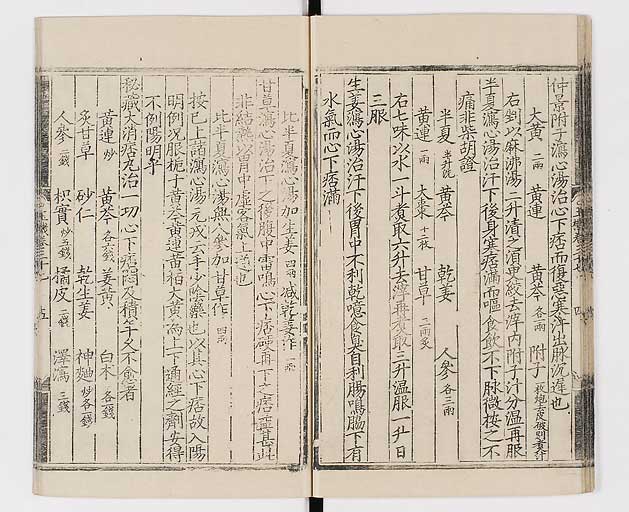 仲景附子瀉心湯治心下痞而復惡寒汗出脉沉遲也
大黃 二兩 黃連 黃芩 各一兩 附子
右剉以麻沸湯二升漬之須臾絞去滓内附子汁分温再服
半夏瀉心湯治汗下後身寒痞滿而嘔食飮不下脉微按之不
痛非柴胡證
半夏 黃芩 乾姜 人參 各三兩
黃連 一兩 大棗 十二枚 甘草 二兩炙
右七味以水一斗煮取六升去滓再煮取三升温服一升日
三服
生姜瀉心湯治汗下後胃中不利乾噫食臭自利腸鳴脇下有
水氣而心下痞滿
此半夏瀉心湯加生姜 四兩 减乾姜作 一兩
甘草瀉心湯治下之後腹中雷鳴心下痞硬再下之痞益甚此
非結熱以胃中虛客氣上逆也
此半夏瀉心湯無人參加甘草作 四兩
按已上諸瀉心湯元戎云手少陰藥也以其心下痞故入陽
明例况服梔子黃芩黃連黃栢大黃爲上下通經之劑安得
不例陽明乎
秘藏大消痞丸治一切心下痞悶及積年久不愈者
黃連 炒 黃芩 各六錢 姜黃 白朮 各一錢
炙甘草 砂仁 乾生姜 神麴 炒各一錢
人參 二錢 枳實 炒五錢 橘皮 二錢 澤瀉 三錢